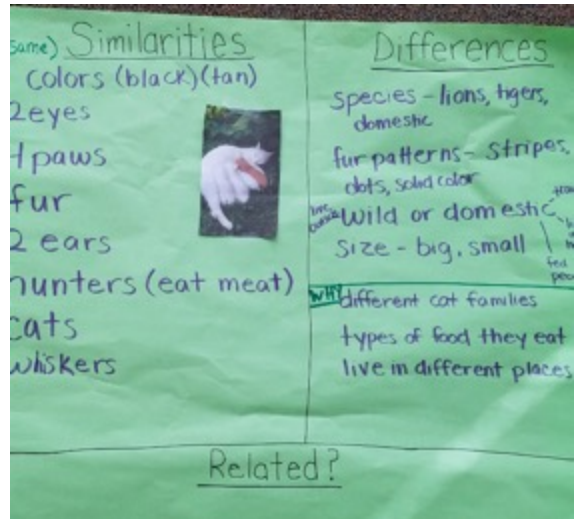 same) Similarities
colors (black)(tan)
2 eyes
4 paws
fur
2 ears
hunters (eat meat)
cats
whiskers
Differences
species - lions, tigers,
domestic
fur patterns - stripes,
dots, solid color
wild or domestic
size - big, small
fed
WHY different cat families
types of food they eat
live in different places
Related?